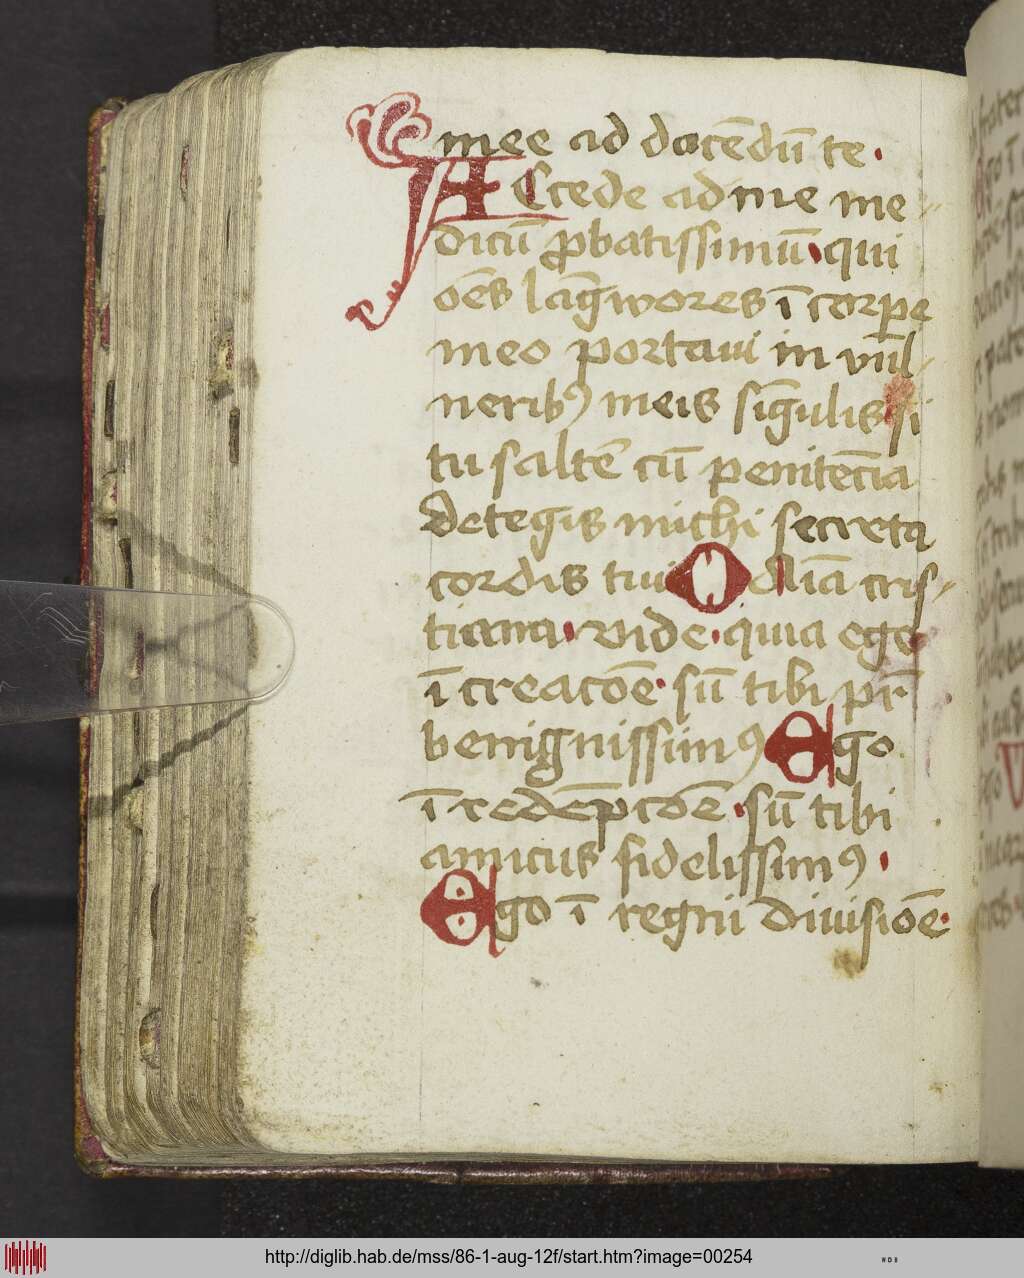 mee ad docēdū te.
ACcede ad me me-
dicū ꝓbatissimū. qui
oēs lāgwores ī corꝑe
meo portaui in vul-
neribꝰ meis sīgulis. si
tu saltē cū penitēcia
detegis michi secreta
cordis tui O aīa cris-
tiana. vide. quia ego
ī creacōe. sū tibi pr̄
benignissimꝰ Ego
ī redēpcōe. sū tibi
amicus fidelissimꝰ.
Ego ī regni diuisiōe.
http://diglib.hab.de/mss/86-1-aug-12f/start.htm?image=00254